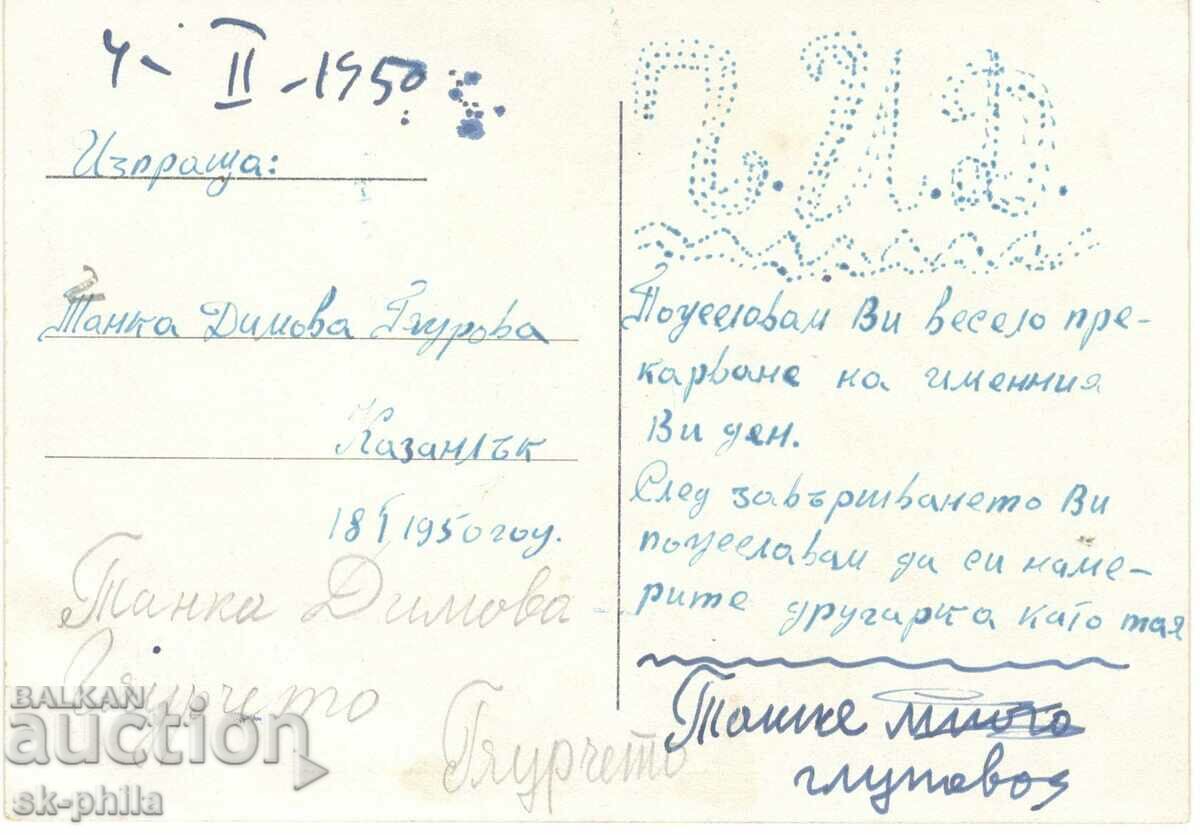 4 - II - 1950
Изпраща:
Танка Димова Гяурова
Казанлък
18 I 1950 год.
Танка Димова
Гяурчето
Гяурчето
Ч.И.Д.
Пожелавам Ви весело пре-
карване на именния
Ви ден.
След завършването Ви
пожелавам да си наме-
рите другарка като тая
Танке много
глупаво
BALKAN
auction
sk-phila